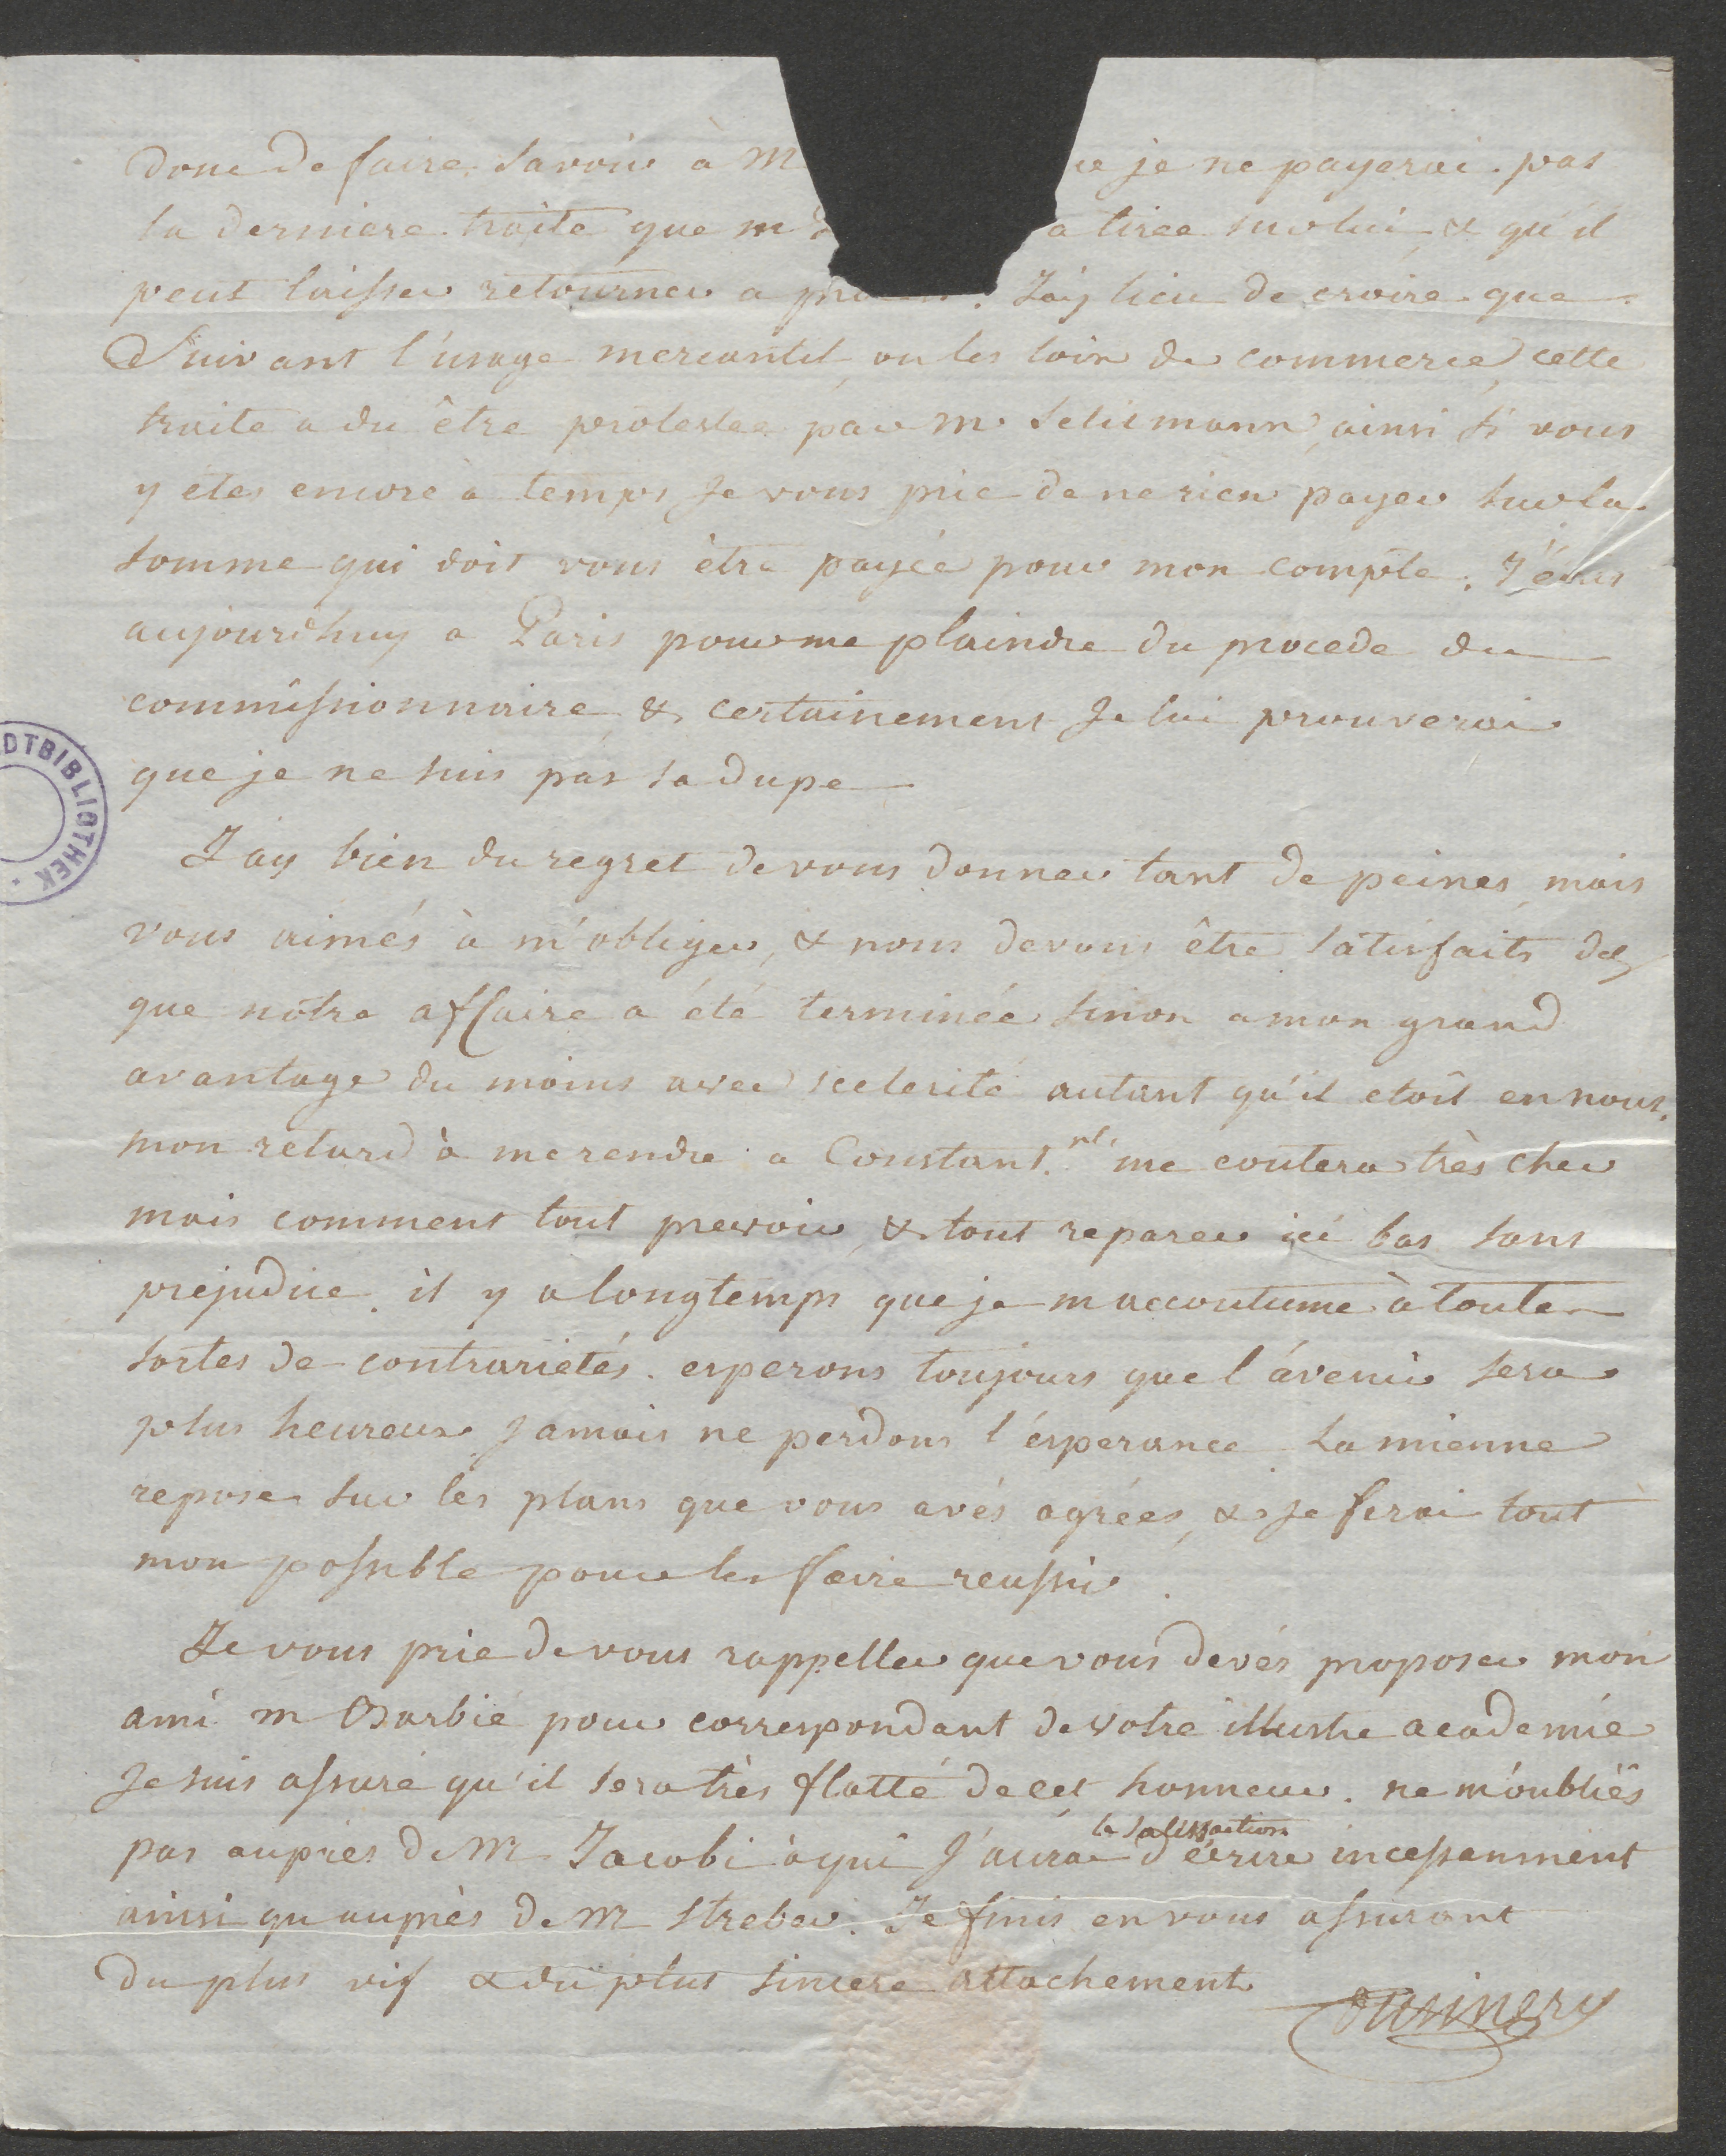 donc de faire savoir à M je ne payerai pas
la derniere traite que m a tirée sur lui, & qu'il
peut laisser retourner a . J'ay lieu de croire que
Suivant l'usage mercantil, ou les loix de commerce, cette
traite a du être protestée par M. Seliemann, ainsi si vous
y etes encore à temps je vous prie de ne rien payer sur la
somme qui doit vous être payée pour mon compte. J'écris
aujourdhuy a Paris pour me plaindre du procede du
commissionnaire, & certainement je lui prouverai
que je ne suis pas sa dupe
J'ay bien du regret de vous donner tant de peines, mais
vous aimés à m'obliger, & nous devons être satisfaits de
que nôtre affaire a été terminée sinon a mon grand
avantage du moins avec scelerité autant qu'il etoit en nous.
mon retard à me rendre a Constant.nl. me coutera très cher
mais comment tout prevoir, & tout reparer ici bas sans
prejudice. il y a longtemps que je maccoutume à toute
sortes de contrariétés. esperons toujours que l'avenir sera
plus heureux jamais ne perdons l'ésperance la mienne
repose sur les plans que vous avés agréés, & je ferai tout
mon possible pour les faire reussir.
Je vous prie de vous rappeller que vous devés proposer mon
ami m Barbié pour correspondant de votre illustre academie
Je suis assuré qu'il sera très flatté de cet honneur. ne m'oubliés
pas aupres de Mr Jacobi à qui j'aurai la satisfaction d'écrire incessamment
ainsi qu'auprès de Mr Streber. Je finis en vous assurant
du plus vif & du plus sincere attachement
Cousinery
DTBIBLIOTHEK